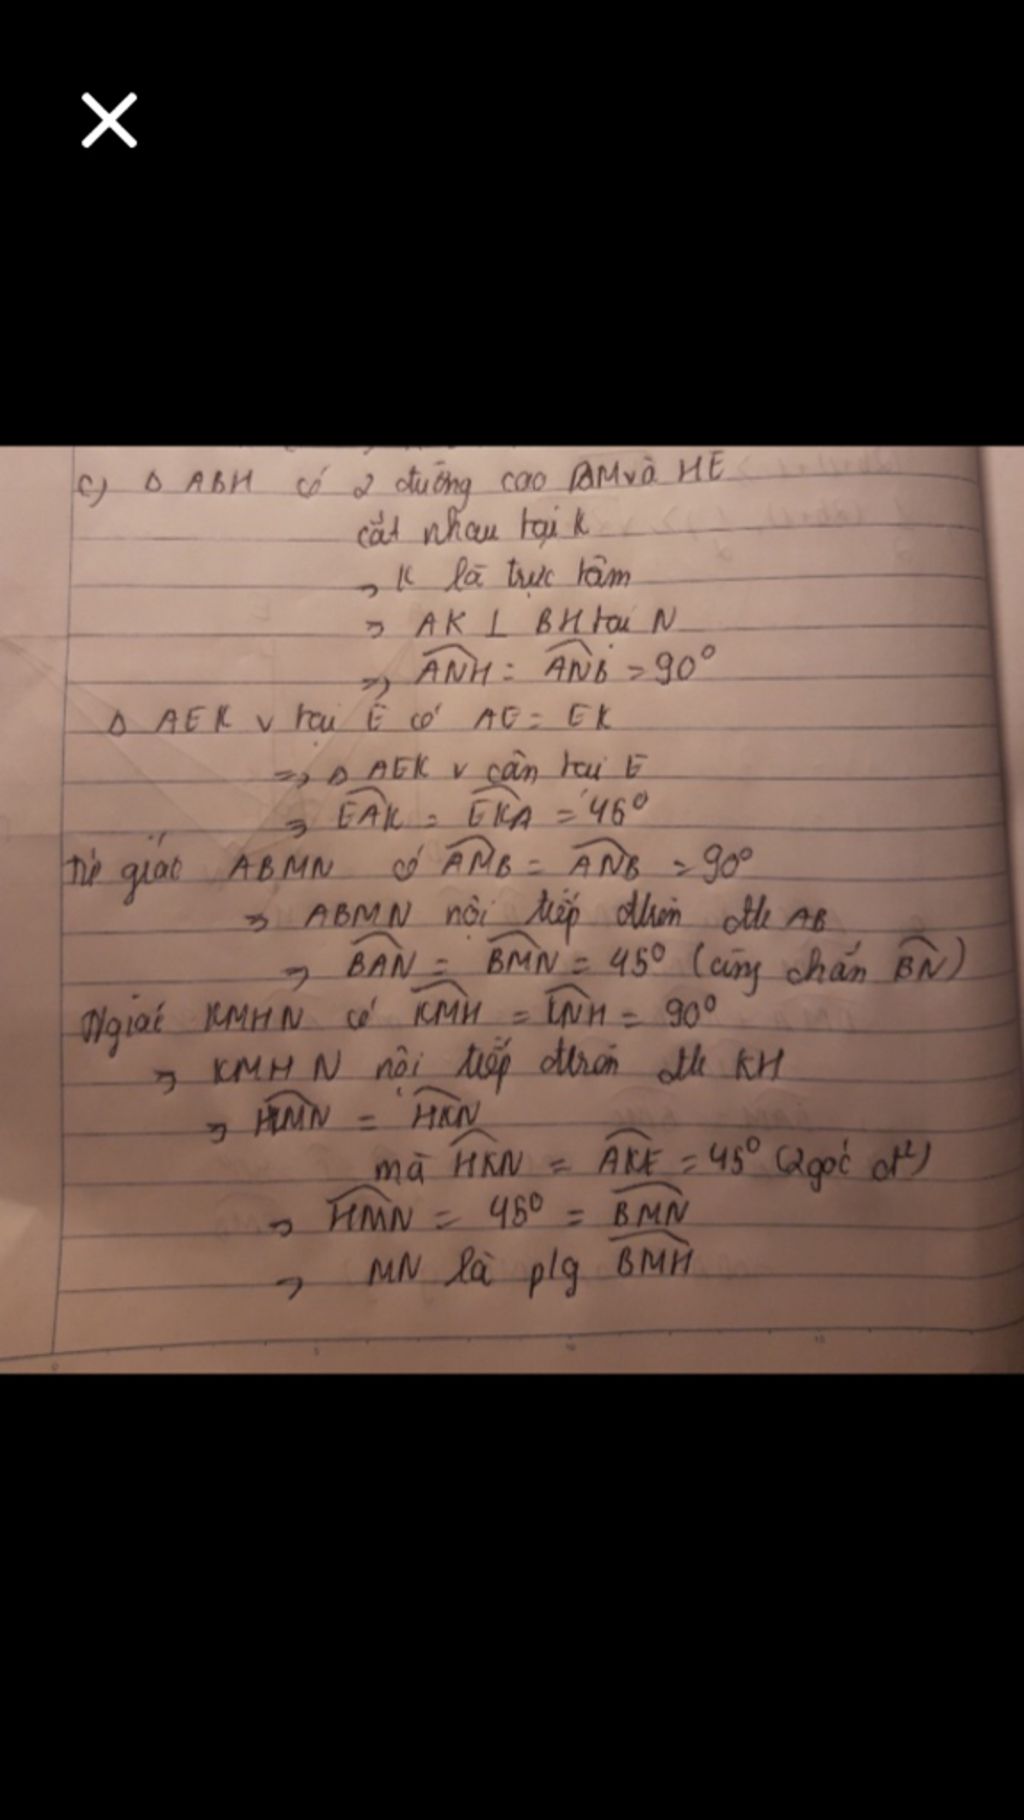 c) Δ ABH có 2 đường cao BM và HE
cắt nhau tại K
⇒ K là trực tâm
⇒ AK ⊥ BH tại N
⇒ ANH = ANB = 90°
Δ AEK v tại E có AE = EK
⇒ Δ AEK v cân tại E
⇒ EAK = EKA = 45°
Tứ giác ABMN có AMB = ANB = 90°
⇒ ABMN nội tiếp đtròn đk AB
⇒ BAN = BMN = 45° (cùng chắn BN)
Tgiác KMHN có KMH = KNH = 90°
⇒ KMHN nội tiếp đtròn đk KH
⇒ HMN = HKN
mà HKN = AKE = 45° (2 góc đ²)
⇒ HMN = 45° = BMN
⇒ MN là p/g BMH